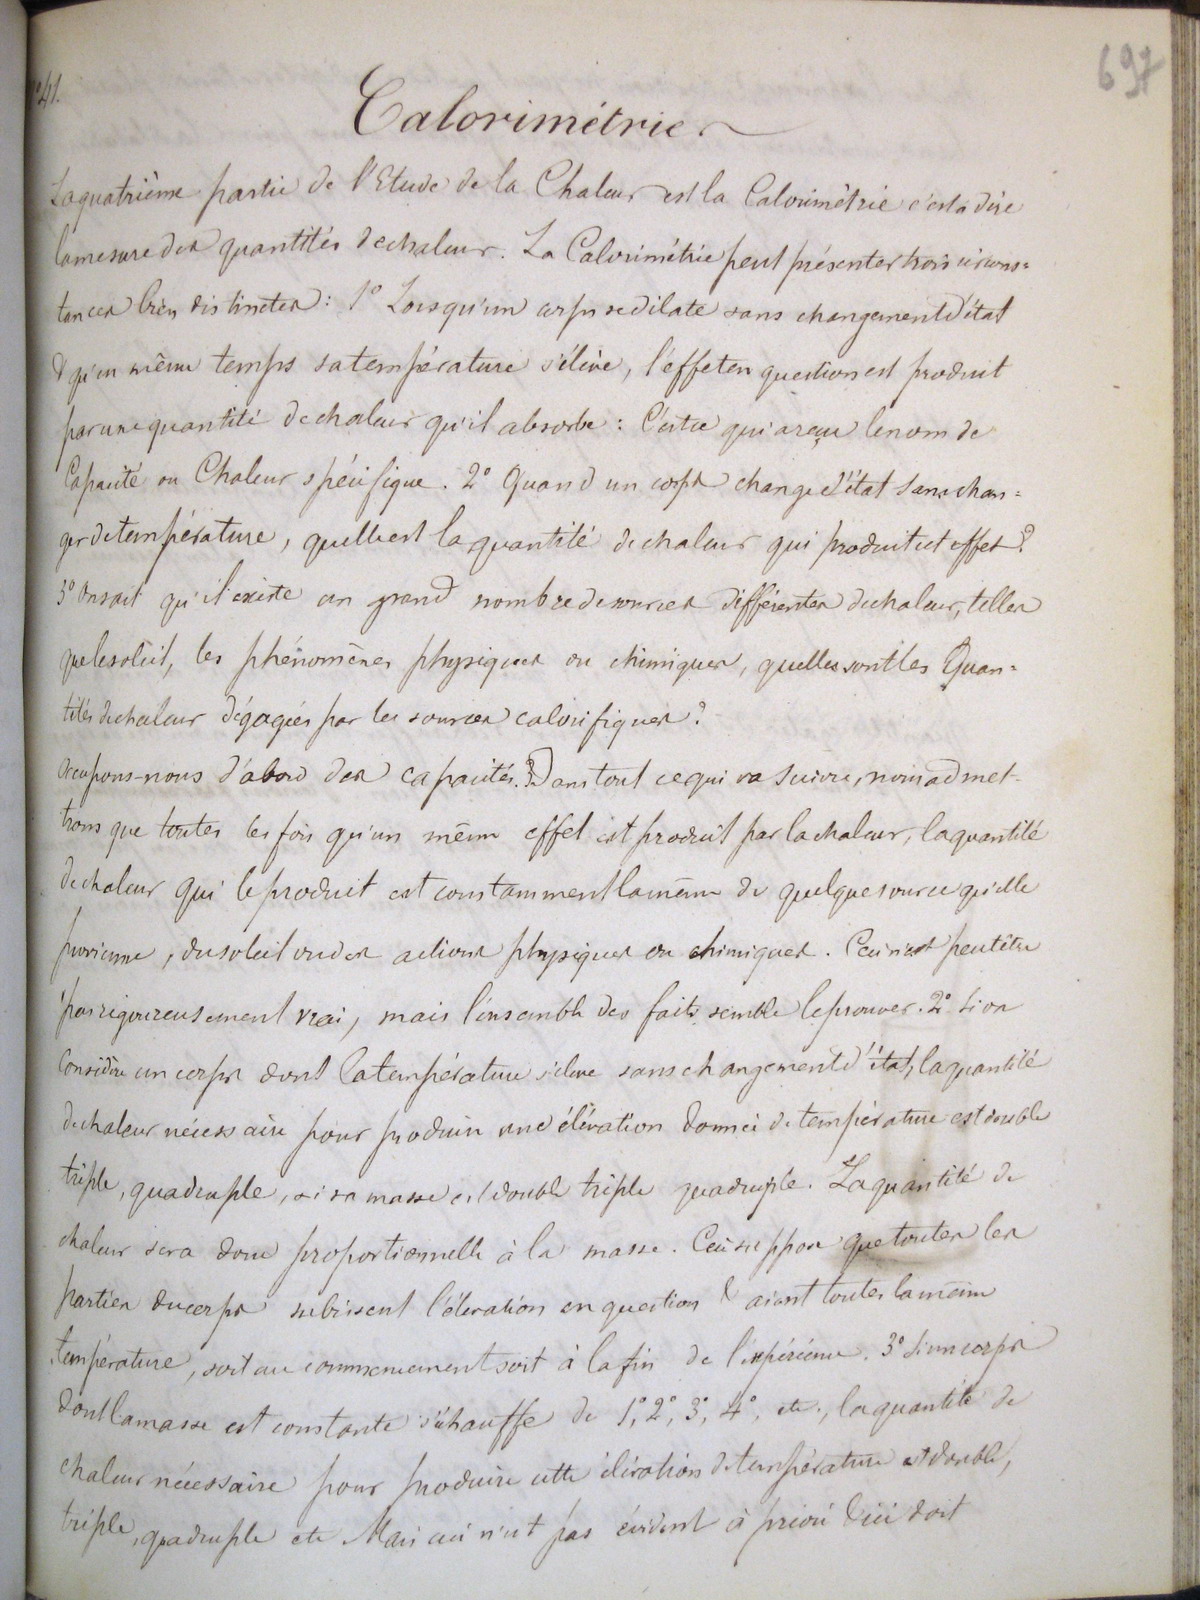 697
N° 41.
Calorimétrie
La quatrième partie de l'Etude de la Chaleur est la Calorimétrie c'est à dire
la mesure des quantités de chaleur. La Calorimétrie peut présenter trois circons=
tances bien distinctes : 1° Lorsqu'un corps se dilate sans changement d'état
& qu'en même temps sa température s'élève, l'effet en question est produit
par une quantité de chaleur qu'il absorbe : C'est ce qui a reçu le nom de
Capacité ou Chaleur spécifique. 2° Quand un corps change d'état sans chan=
ger de température, quelle est la quantité de chaleur qui produit cet effet ?
3° On sait qu'il existe un grand nombre de sources différentes de chaleur, telles
que le soleil, les phénomènes physiques ou chimiques, quelles sont les Quan=
tités de chaleur dégagées par les sources calorifiques ?
Occupons-nous d'abord des capacités. Dans tout ce qui va suivre, nous admet-
trons que toutes les fois qu'un même effet est produit par la chaleur, la quantité
de chaleur qui le produit est constamment la même de quelque source qu'elle
provienne, du soleil ou des actions physiques ou chimiques. Ceci n'est peut être
pas rigoureusement vrai, mais l'ensemble des faits semble le prouver. 2° Si on
Considère un corps dont la température s'élève sans changement d'état, la quantité
de chaleur nécessaire pour produire une élévation donnée de température est double
triple, quadruple, si sa masse est double triple quadruple. La quantité de
chaleur sera donc proportionnelle à la masse. Ceci suppose que toutes les
parties du corps subissent l'élévation en question & aient toutes la même
température, soit au commencement soit à la fin de l'expérience. 3° Si un corps
dont la masse est constante s'échauffe de 1°, 2°, 3°, 4°, etc., la quantité de
chaleur nécessaire pour produire cette élévation de température est double,
triple, quadruple etc Mais ceci n'est pas évident à priori & ici doit